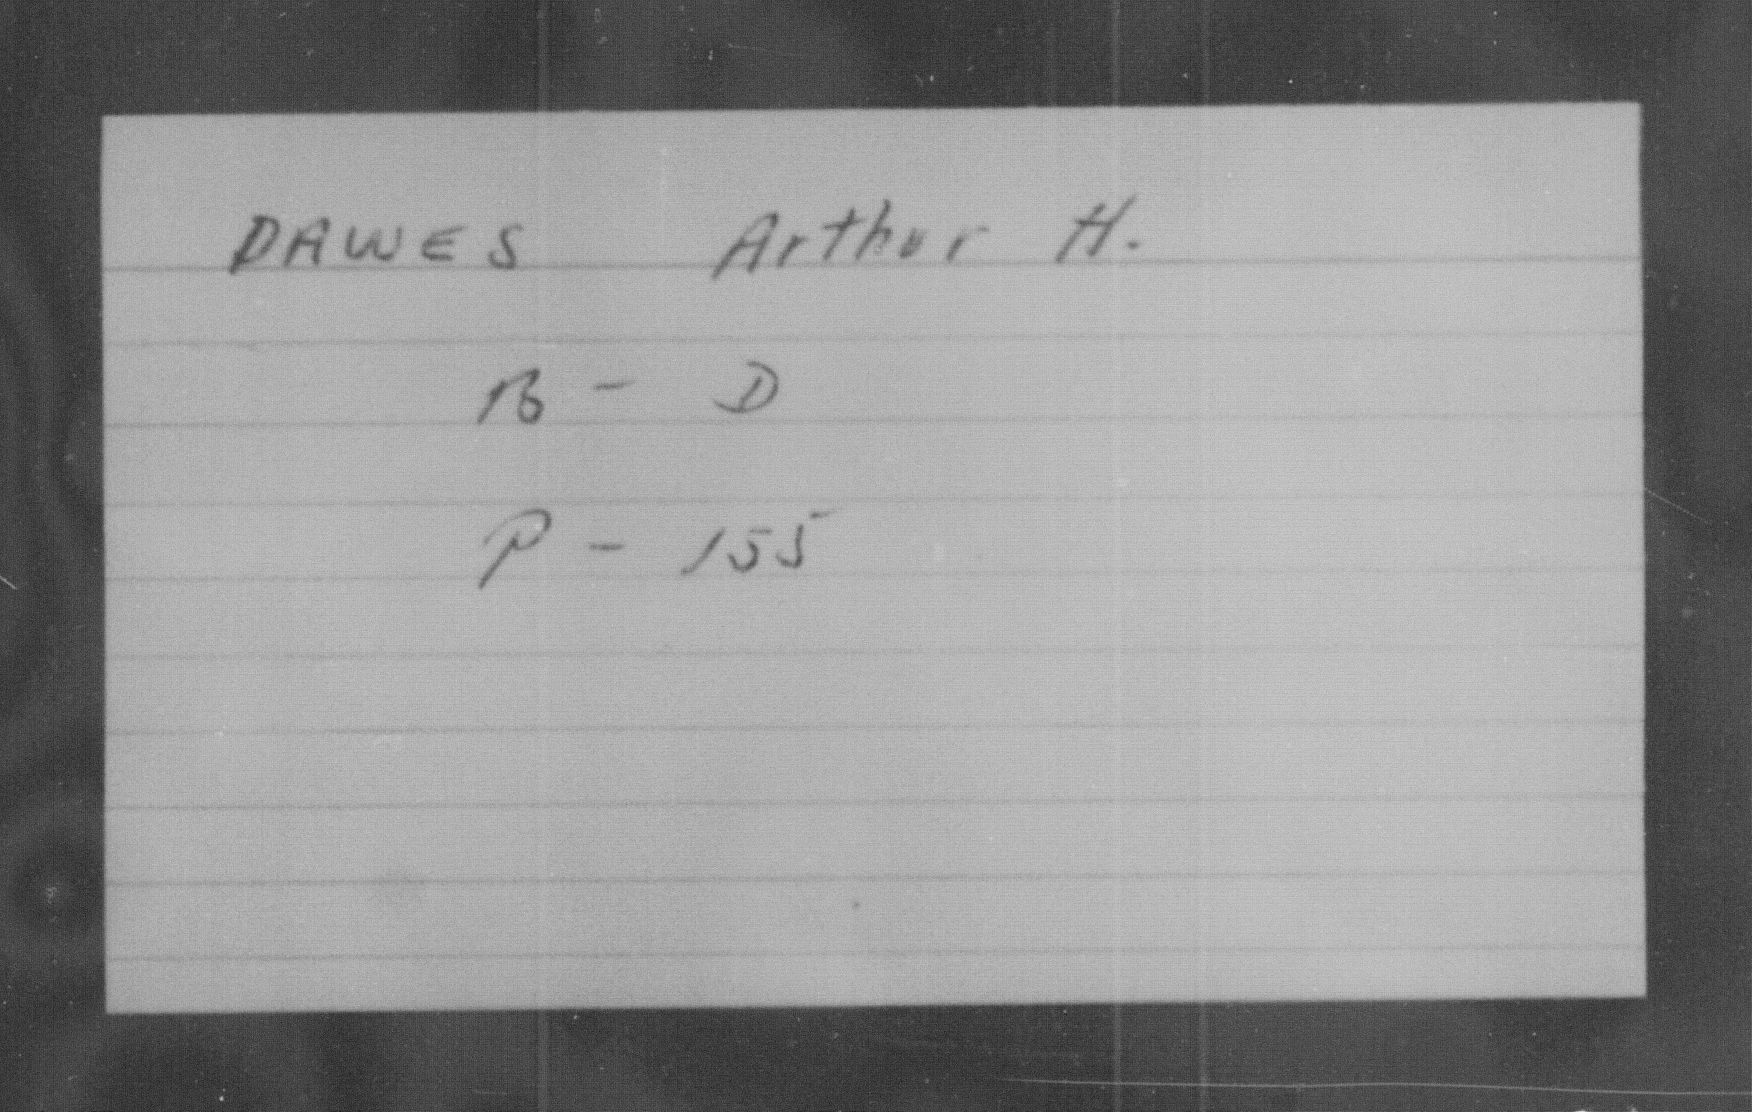 DAWES Arthur H.
B - D
P - 155